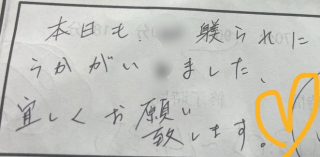 本日も、 躾られに
うかがい ました、
宜しくお願い
致します。